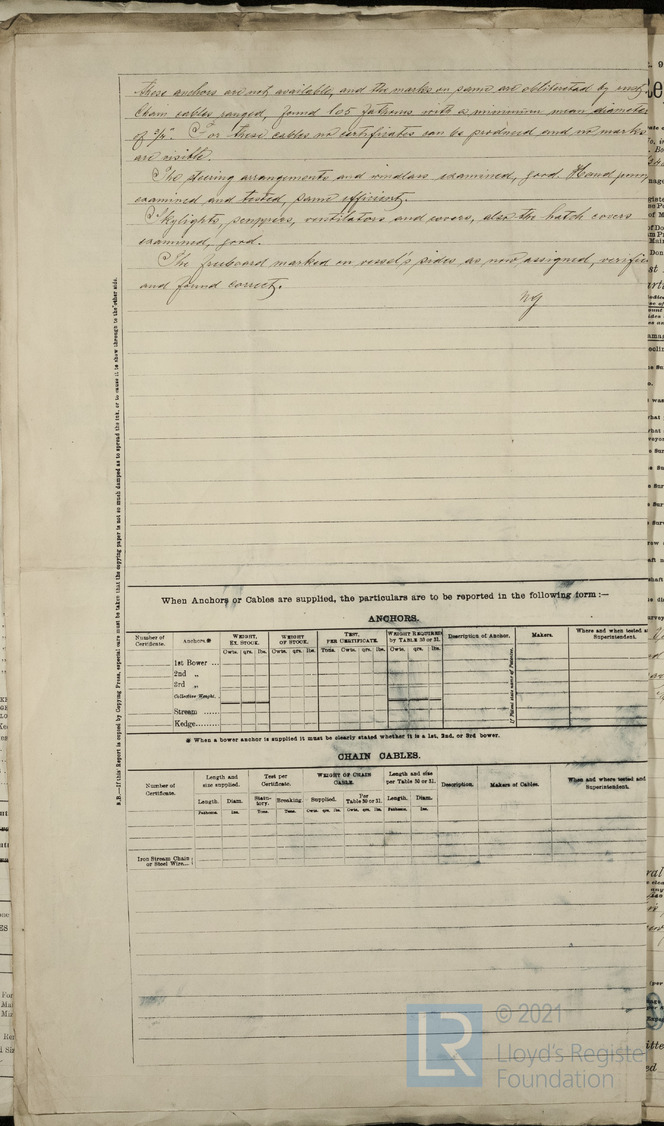 these anchors are not available, and the marks on same are obliterated by rust.
Chain cables ranged, found 105 fathoms with a minimum mean diameter
of For these cables no certificates can be produced and no marks
are visible.
The steering arrangements and windlass examined, good Hand pump
examined and tested, same efficient.
Skylights, scuppers, ventilators and covers, also the hatch covers
examined, good.
The freeboard marked on vessel's sides as now assigned, verified
and found correct.
N.B.—If this Report is copied by Copying Press, especial care must be taken that the copying paper is not so much damped as to spread the ink, or to cause it to show through to the other side.
When Anchors or Cables are supplied, the particulars are to be reported in the following form:—
ANCHORS.
Number of Certificate. Anchors.* WEIGHT, EX. STOCK. WEIGHT OF STOCK. TEST, PER CERTIFICATE. WEIGHT REQUIRED by TABLE 30 or 31. Description of Anchor. Makers. Where and when tested
Superintendent.
Cwts. qrs. lbs. Cwts. qrs. lbs. Tons. Cwts. qrs. lbs. Cwts. qrs. lbs.
1st Bower ...
2nd „
3rd „
Collective Weight.
Stream ......
Kedge........
If Patent state name of Patentee.
* When a bower anchor is supplied it must be clearly stated whether it is a 1st, 2nd, or 3rd bower.
CHAIN CABLES.
Number of Certificate. Length and size supplied. Test per Certificate. WEIGHT OF CHAIN CABLE. Length and size per Table 30 or 31. Description. Makers of Cables. When and where tested and Superintendent.
Length. Diam. Statutory. Breaking. Supplied. Per Table 30 or 31. Length. Diam.
Fathoms. Ins. Tons. Tons. Cwts. qrs. lbs. Cwts. qrs. lbs. Fathoms. Ins.
Iron Stream Chain or Steel Wire...
LR
© 2021
Lloyd's Registe
Foundation